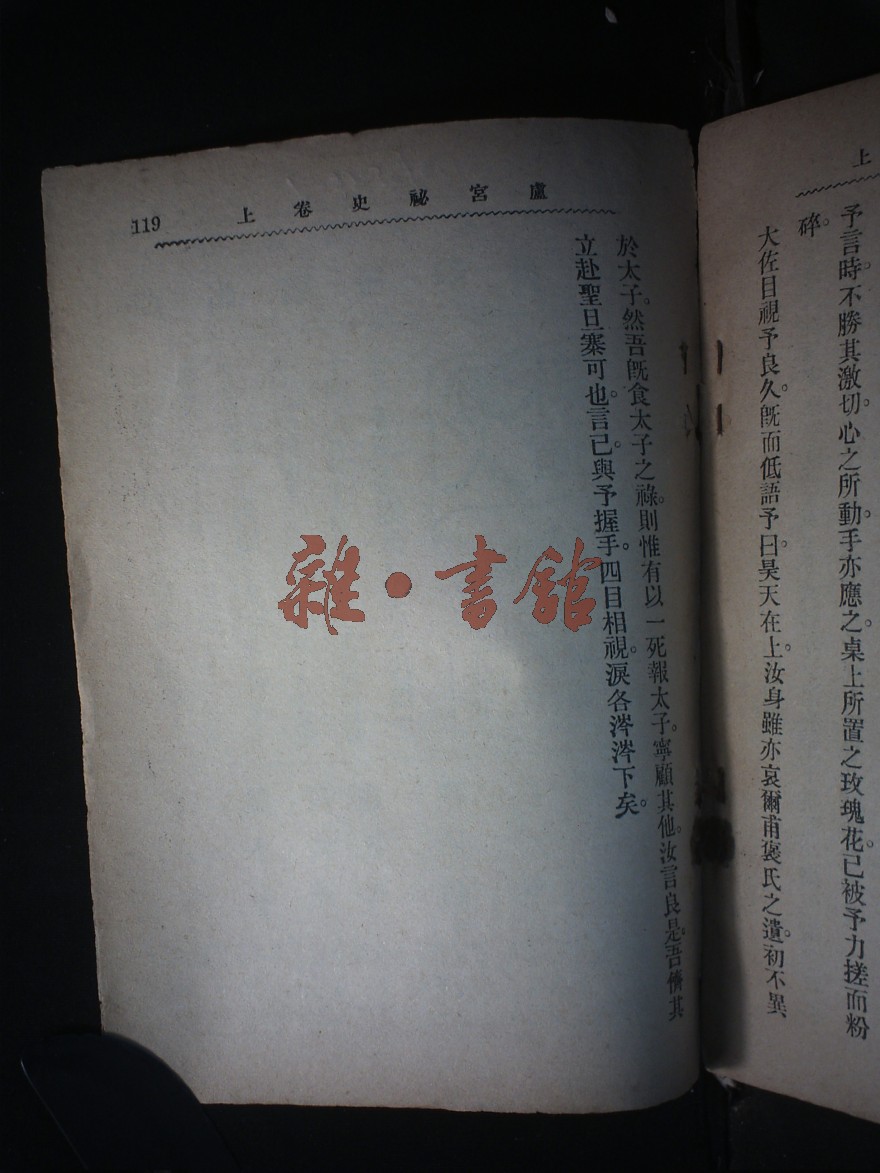 上
予言時。不勝其激切。心之所動。手亦應之。桌上所置之玫瑰花。已被予力搓而粉
碎。
大佐目視予良久。旣而低語予曰。昊天在上。汝身雖亦哀爾甫褒氏之遺。初不異
盧宮祕史卷上
119
於太子。然吾旣食太子之祿。則惟有以一死報太子。寧顧其他。汝言良是。吾儕其
立赴聖旦寨可也。言已。與予握手。四目相視。淚各涔涔下矣。
雜·書館